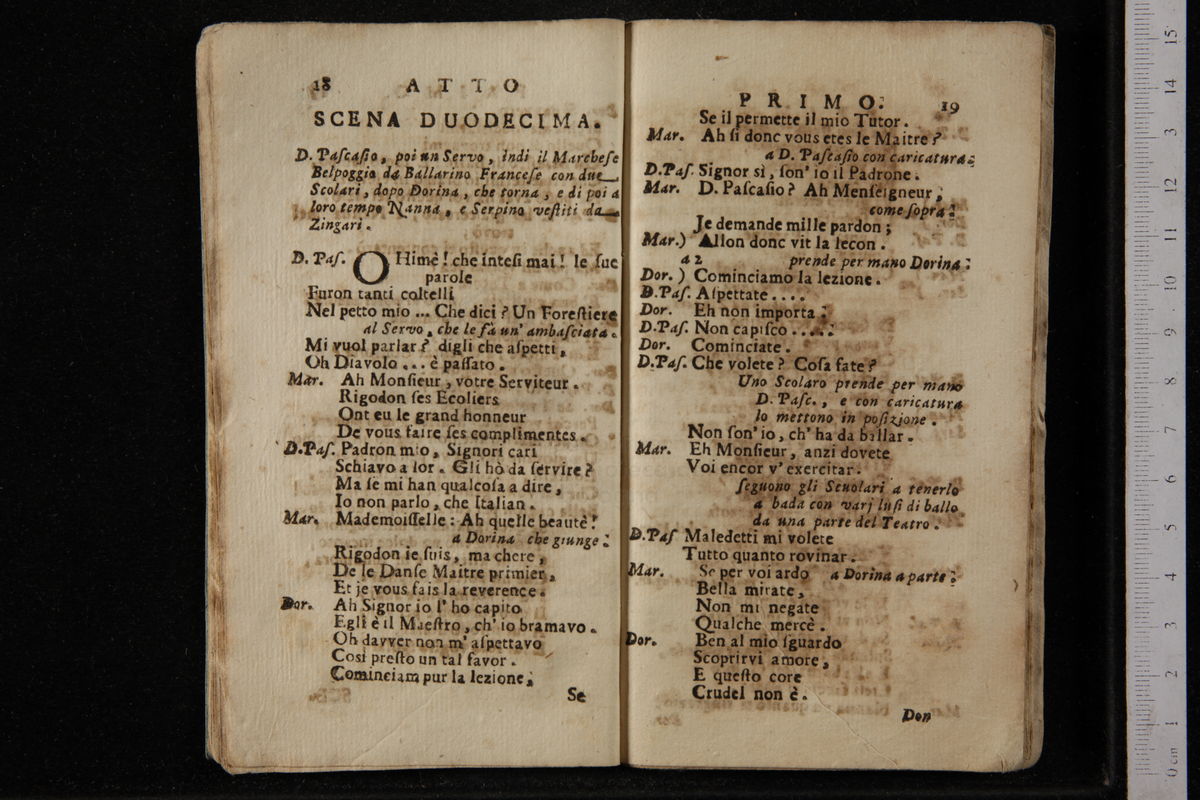 18 ATTO
SCENA DUODECIMA.
D. Paſcaſio, poi un Servo, indi il Marcheſe
Belpoggio da Ballarino Franceſe con due
Scolari, dopo Dorina, che torna, e di poi a
loro tempo Nanna, e Serpino veſtiti da
Zingari.
D. Paſ. OHimè! che inteſi mai! le ſue
parole
Furon tanti coltelli
Nel petto mio ... Che dici? Un Foreſtiere
al Servo, che le fà un' ambaſciata.
Mi vuol parlar? digli che aſpetti,
Oh Diavolo ... è paſſato.
Mar. Ah Monſieur, votre Serviteur.
Rigodon ſes Ecoliers
Ont eu le grand honneur
De vous faire ſes complimentes.
D.Paſ. Padron mio, Signori cari
Schiavo a lor. Gli hò da ſervire?
Ma ſe mi han qualcoſa a dire,
Io non parlo, che Italian.
Mar. Mademoiſſelle: Ah quelle beautè!
a Dorina che giunge:
Rigodon je ſuis, ma chere,
De le Danſe Maitre primier,
Et je vous fais la reverence.
Dor. Ah Signor io l' ho capito
Egli è il Maeſtro, ch' io bramavo.
Oh davver non m' aſpettavo
Così preſto un tal favor.
Cominciam pur la lezione,
Se
PRIMO. 19
Se il permette il mio Tutor.
Mar. Ah ſi donc vous etes le Maitre?
a D. Paſcaſio con caricatura:
D.Paſ. Signor sì, ſon' io il Padrone.
Mar. D. Paſcaſio? Ah Menſeigneur,
come ſopra:
Je demande mille pardon;
Mar.) Allon donc vit la lecon.
a 2 prende per mano Dorina:
Dor. ) Cominciamo la lezione.
D.Paſ. Aſpettate....
Dor. Eh non importa:
D.Paſ. Non capiſco.....
Dor. Cominciate.
D.Paſ. Che volete? Coſa fate?
Uno Scolaro prende per mano
D. Paſc., e con caricatura
lo mettono in poſizione.
Non ſon' io, ch' ha da ballar.
Mar. Eh Monſieur, anzi dovete
Voi encor v' exercitar.
ſeguono gli Scuolari a tenerlo
a bada con varj luſi di ballo
da una parte del Teatro.
D.Paſ Maledetti mi volete
Tutto quanto rovinar.
Mar. Se per voi ardo a Dorina a parte:
Bella mirate,
Non mi negate
Qualche mercè.
Dor. Ben al mio ſguardo
Scoprirvi amore,
E queſto core
Crudel non è.
Don